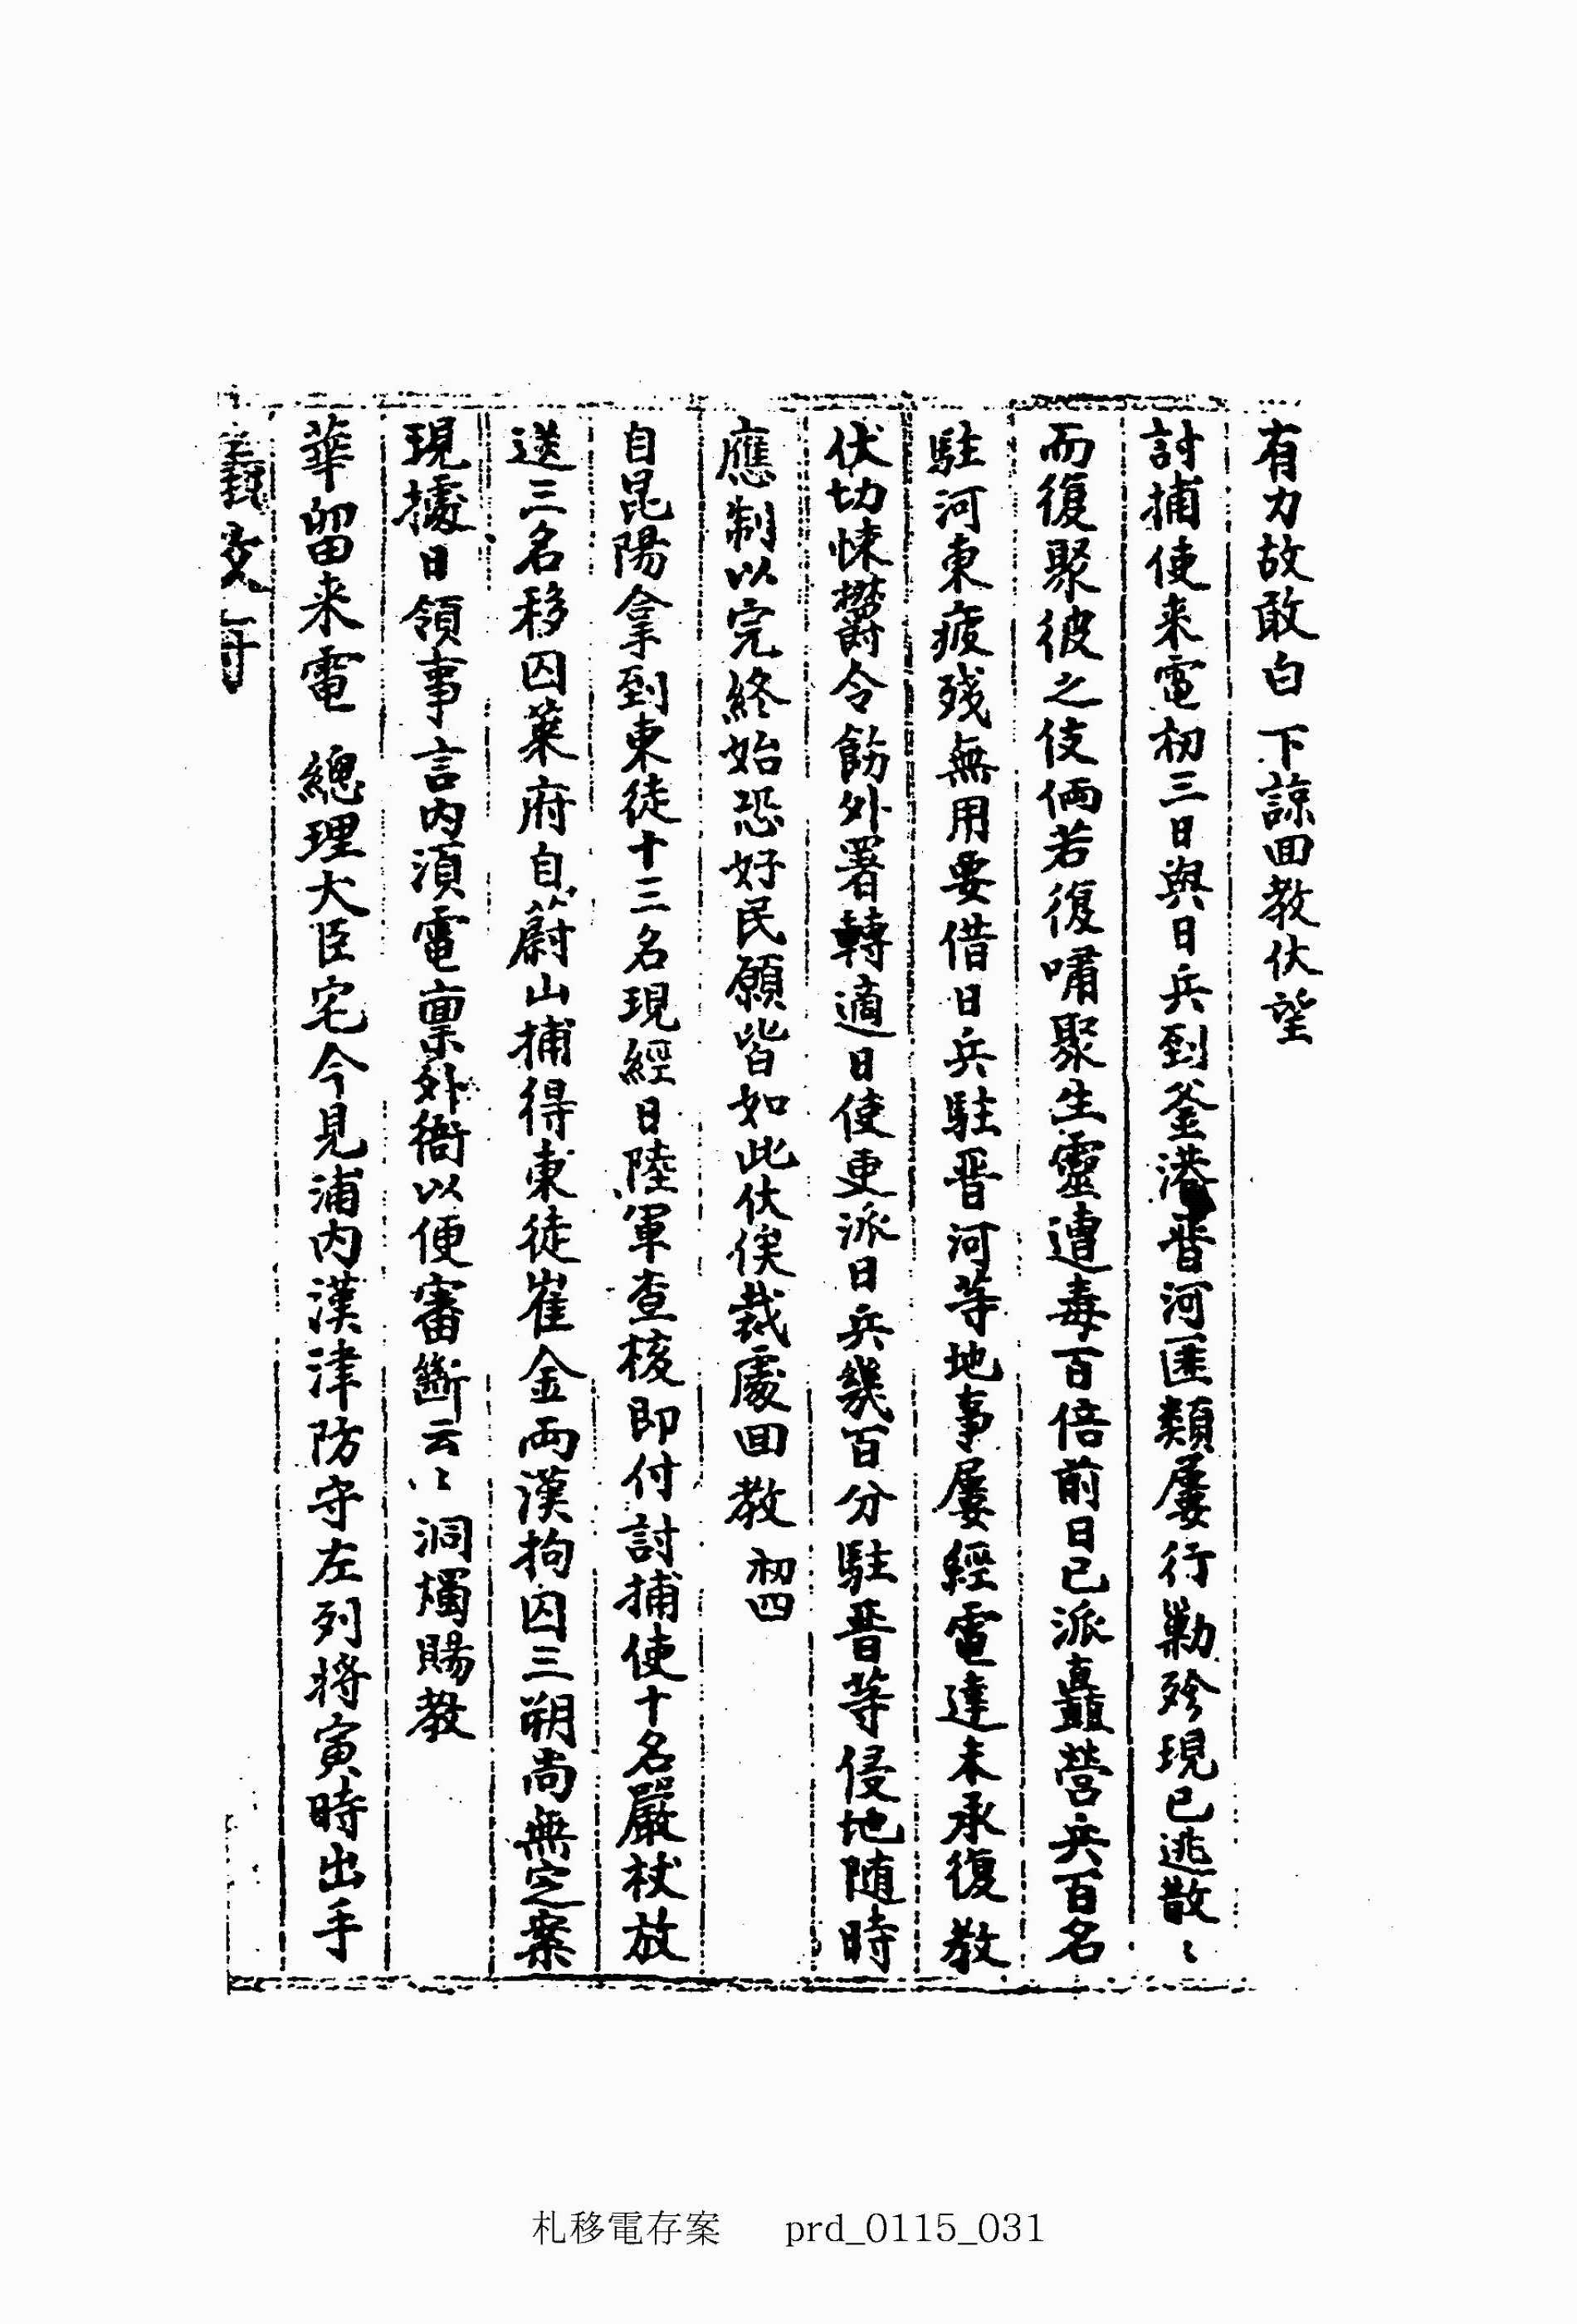 有力故敢白 下諒回教伏望
討捕使来電初三日與日兵到釜港晋河匪類屢行勦殄現已逃散〻
而復聚彼之伎倆若復嘯聚生靈遭毒百倍前日已派矗營兵百名
駐河東疲残無用要借日兵駐晋河等地事屢經電達未承復教
伏切悚欝令飭外署轉適日使更派日兵幾百分駐晋等侵地随時
應制以完終始恐好民願皆如此伏俟裁處回教 初四
自昆陽拿到東徒十三名現經日陸軍查核即付討捕使十名嚴杖放
送三名移囚萊府自蔚山捕得東徒崔金兩漢拘囚三朔尚無定案
現據日領事言内湏電禀外衙以便審斷云〻 洞燭賜教
華留来電 總理大臣宅今見浦内漢津防守左列将寅時出手
義文
札移電存案 prd_0115_031